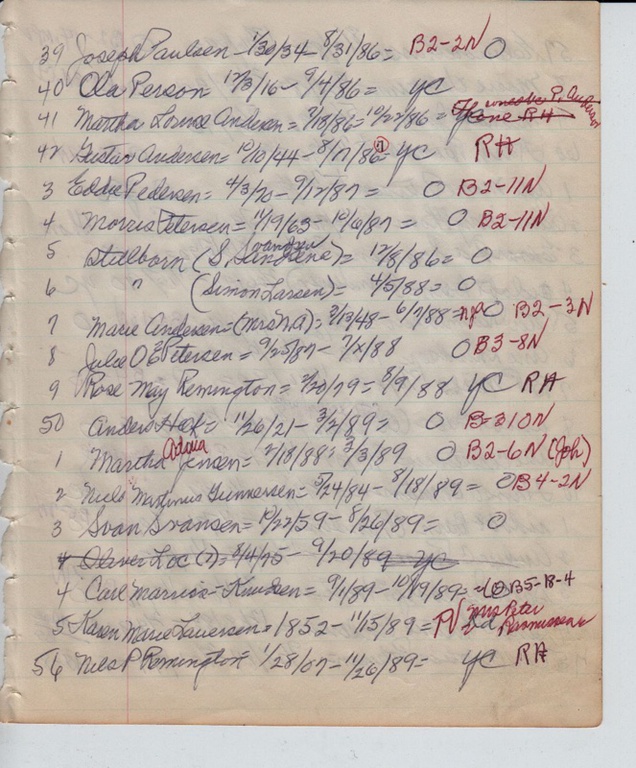 39 Joseph Paulsen - 1/30/34 - 8/31/86 = B2-2N O
40 Ola Person 12/3/16 - 9/4/86 = yc
41 Martha Louise Andersen = 7/18/86 = 10/22/86 =
42 Gustav Andersen = 10/10/44 - 8/17/86 = yc RH
3 Eddie Pedersen = 4/3/70 - 9/12/87 = O B2-11N
4 Morris Petersen = 11/9/63 - 10/6/87 = O B2-11N
5 Stillborn (S. Svandsen) = 12/8/86 = O
6 " (Simon Larsen) = 4/5/88 = O
7 Marie Andersen = (Mrs N.A) = 2/13/48 - 6/7/88 = np O B2-3N
8 Julie O E Petersen = 9/25/87 - 7/x/88 O B3-8N
9 Rose May Remington = 2/20/79 = 8/9/88 yc RH
50 Anders Hof = 11/26/21 - 3/2/89 = O B-310N
1 Martha Jensen = 2/18/88 = 3/3/89 O B2-6N (Joh)
2 Niels Martinus Gunnersen = 5/24/84 - 8/18/89 = O B4-2N
3 Svan Svansen = 10/22/59 - 8/26/89 = O
4 Oliver Loc (?) = 8/4/75 - 9/20/89 yc
4 Carl Marius Knudsen = 9/1/89 - 10/19/89 = O B5-18-4
5 Karen Marie Lauersen = 1852 - 11/15/89 = Mrs Peter Rasmussen
56 Niels P Remington = 1/28/07 - 11/26/89 = yc RH